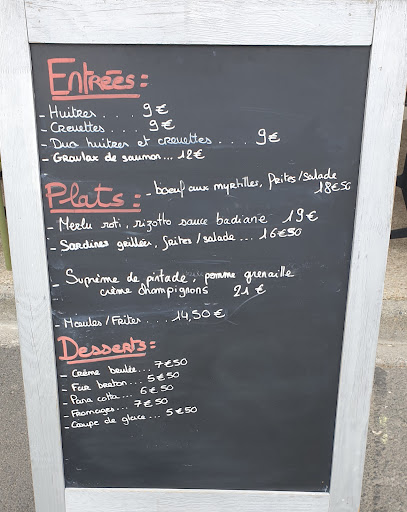 Entrées :
- Huitres . . . . 9 €
- Crevettes . . . . 9 €
- Duo huitres et crevettes . . . . 9 €
- Gravlax de saumon... 12 €
Plats :
- boeuf aux myrtilles, frites/salade
18 € 50
- Merlu roti, rizotto sauce badiane 19 €
- Sardines grillées, frites/salade ... 16 € 50
- Suprême de pintade, pomme grenaille
crème champignons 21 €
- Moules/Frites . . . . 14,50 €
Desserts :
- Crème brulée... 7 € 50
- Far breton... 5 € 50
- Pana cotta... 6 € 50
- Fromages... 7 € 50
- Coupe de glace... 5 € 50